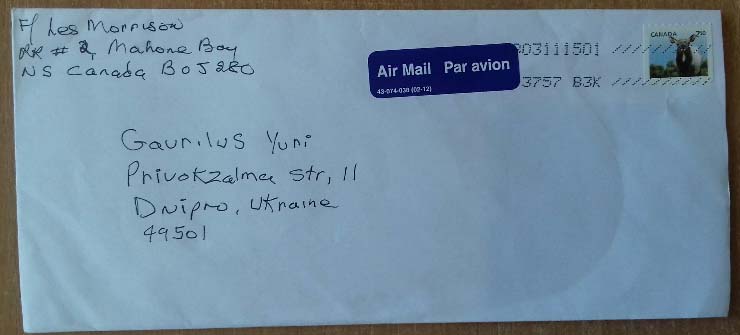 F/ Les Morrison
RR # 2, Mahone Bay
NS Canada B0J2E0
Air Mail Par avion
43-074-038 (02-12)
03111501
3757 B3K
CANADA
Gaurilus Yuri
Privokzalma str, 11
Dnipro, Ukraine
49501